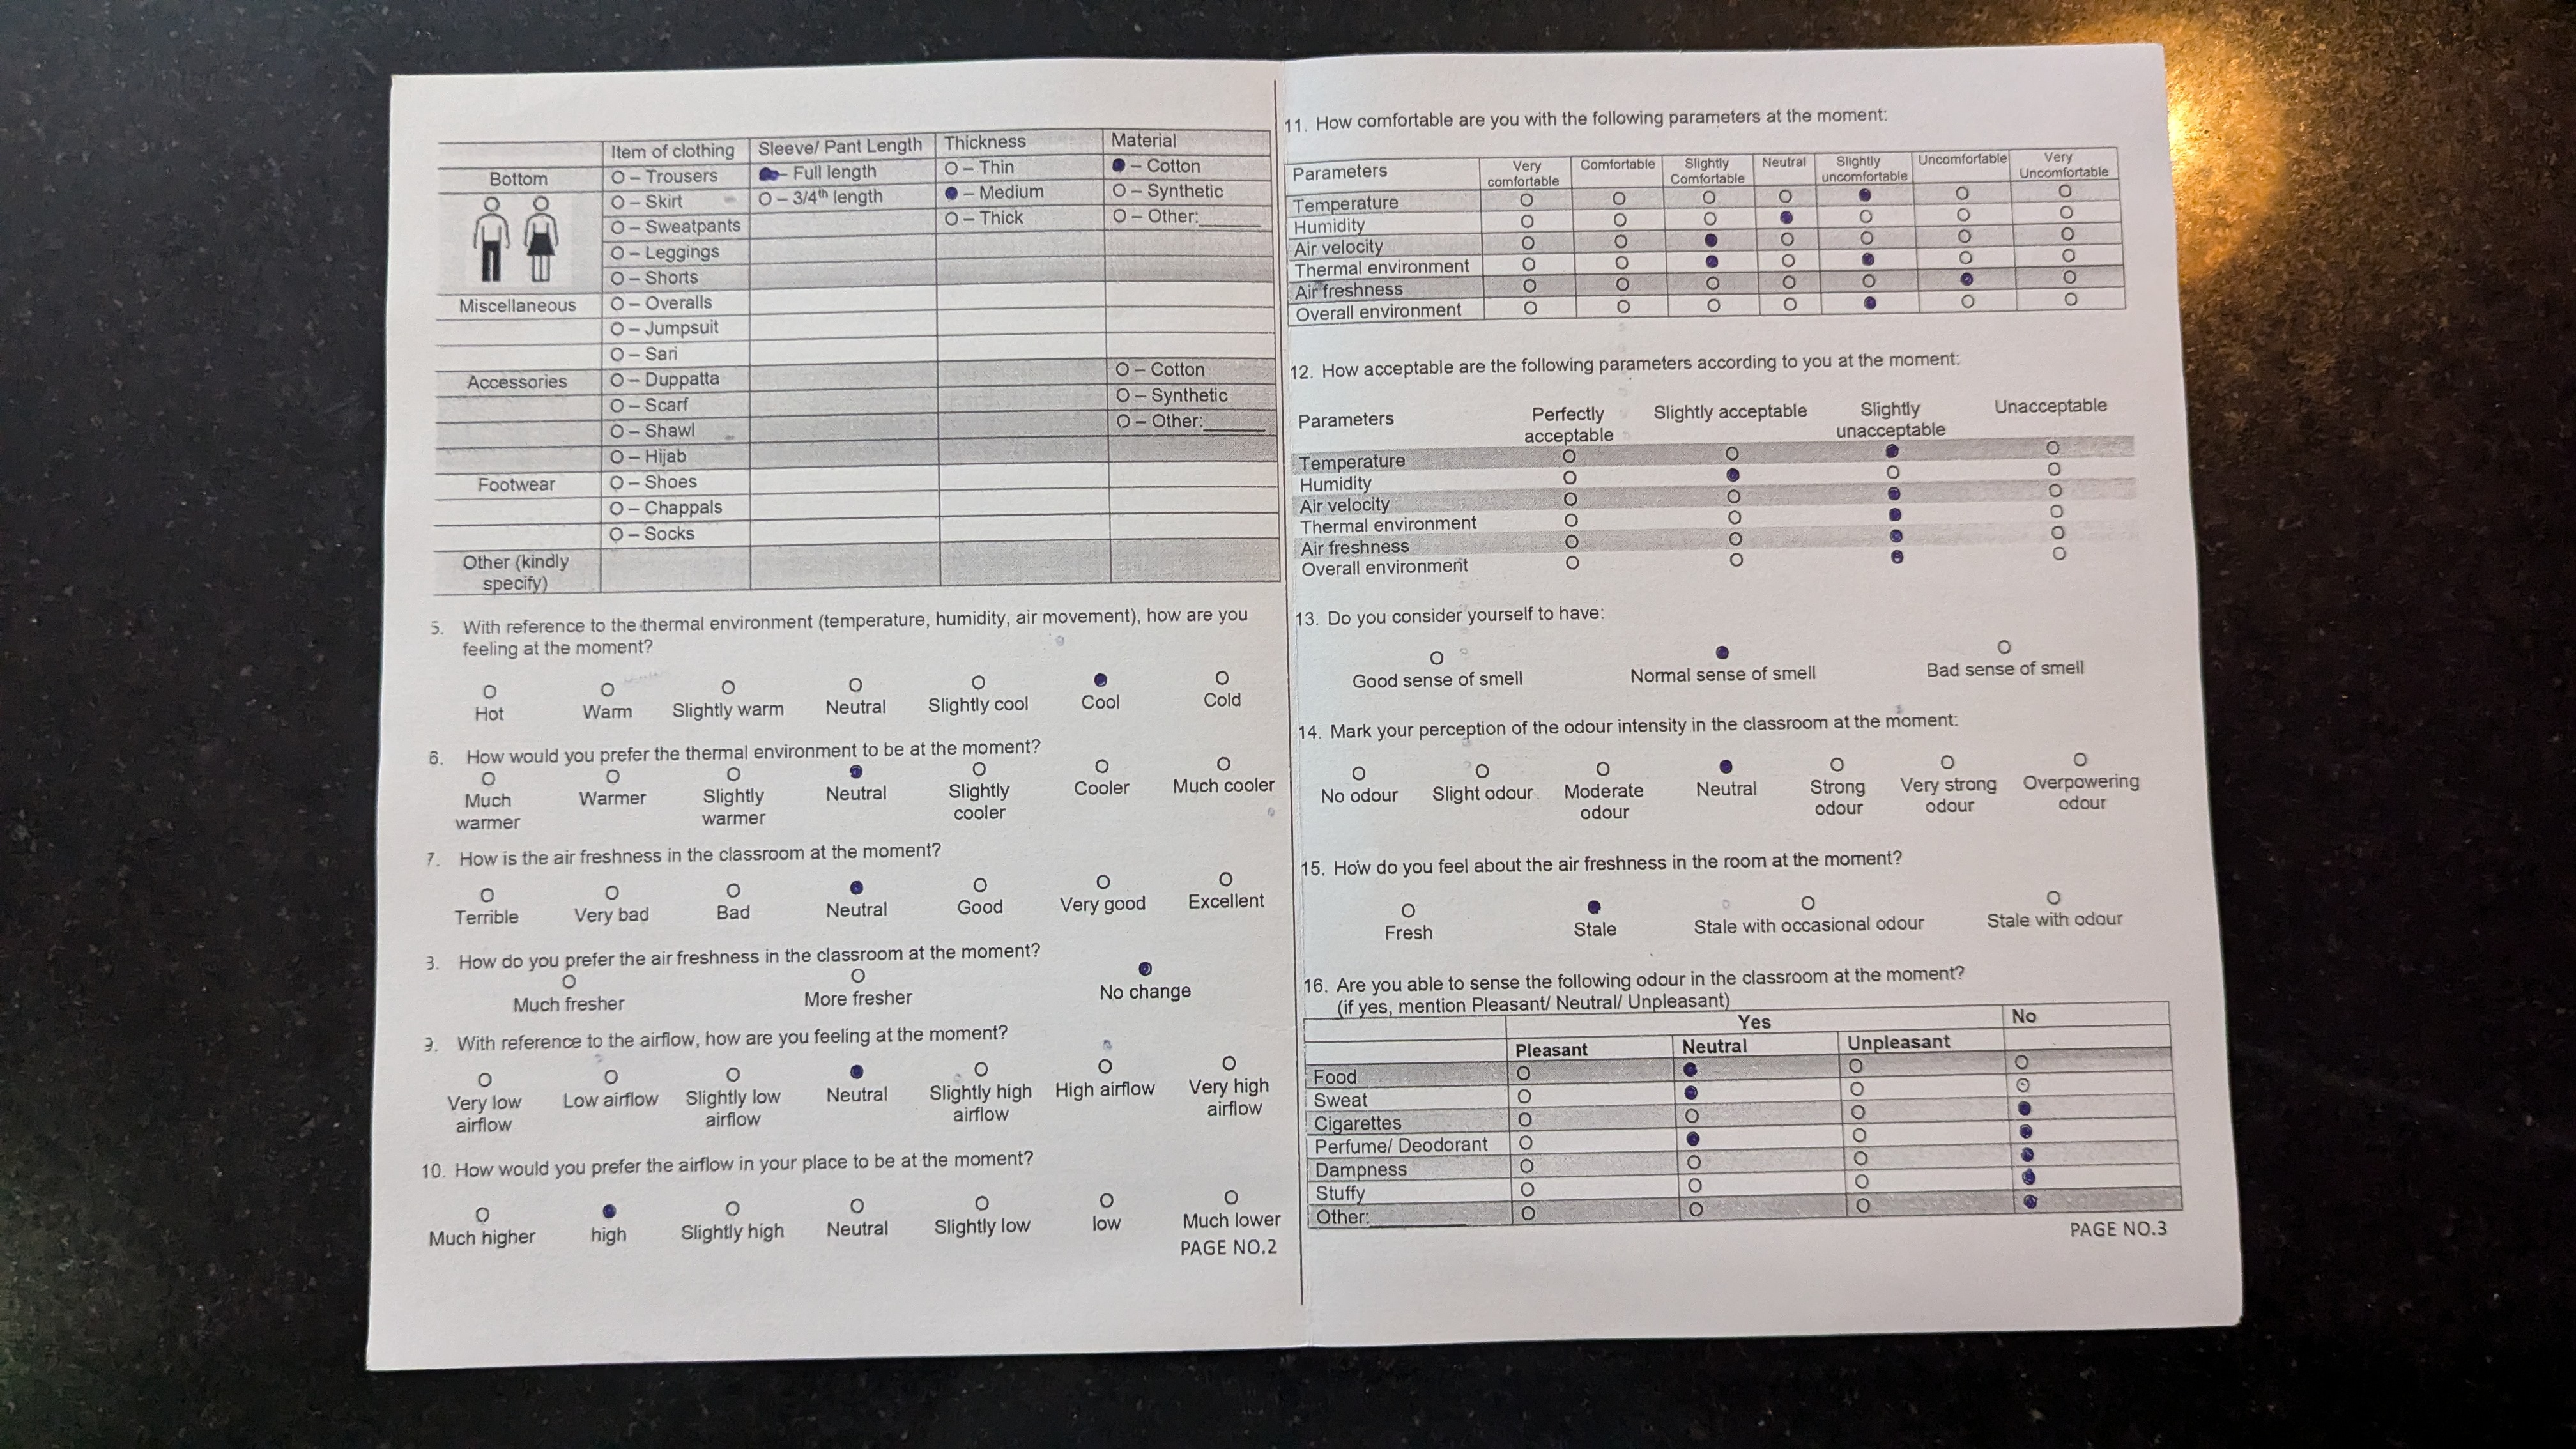 Item of clothing Sleeve/ Pant Length Thickness Material
Bottom O – Trousers ●– Full length O – Thin ● – Cotton
O – Skirt O – 3/4th length ● – Medium O – Synthetic
O – Sweatpants O – Thick O – Other:______
O – Leggings
O – Shorts
Miscellaneous O – Overalls
O – Jumpsuit
O – Sari
Accessories O – Duppatta O – Cotton
O – Scarf O – Synthetic
O – Shawl O – Other:______
O – Hijab
Footwear O – Shoes
O – Chappals
O – Socks
Other (kindly
specify)
5. With reference to the thermal environment (temperature, humidity, air movement), how are you
feeling at the moment?
O O O O O ● O
Hot Warm Slightly warm Neutral Slightly cool Cool Cold
6. How would you prefer the thermal environment to be at the moment?
O O O ● O O O
Much Warmer Slightly Neutral Slightly Cooler Much cooler
warmer warmer cooler
7. How is the air freshness in the classroom at the moment?
O O O ● O O O
Terrible Very bad Bad Neutral Good Very good Excellent
3. How do you prefer the air freshness in the classroom at the moment?
O O ●
Much fresher More fresher No change
9. With reference to the airflow, how are you feeling at the moment?
O O O ● O O O
Very low Low airflow Slightly low Neutral Slightly high High airflow Very high
airflow airflow airflow airflow
10. How would you prefer the airflow in your place to be at the moment?
O ● O O O O O
Much higher high Slightly high Neutral Slightly low low Much lower
PAGE NO.2
11. How comfortable are you with the following parameters at the moment:
Parameters Very Comfortable Slightly Neutral Slightly Uncomfortable Very
comfortable Comfortable uncomfortable Uncomfortable
Temperature O O O O ● O O
Humidity O O O ● O O O
Air velocity O O ● O O O O
Thermal environment O O ● O ● O O
Air freshness O O O O O ● O
Overall environment O O O O ● O O
12. How acceptable are the following parameters according to you at the moment:
Parameters Perfectly Slightly acceptable Slightly Unacceptable
acceptable unacceptable
Temperature O O ● O
Humidity O ● O O
Air velocity O O ● O
Thermal environment O O ● O
Air freshness O O ● O
Overall environment O O ● O
13. Do you consider yourself to have:
O ● O
Good sense of smell Normal sense of smell Bad sense of smell
14. Mark your perception of the odour intensity in the classroom at the moment:
O O O ● O O O
No odour Slight odour Moderate Neutral Strong Very strong Overpowering
odour odour odour odour
15. How do you feel about the air freshness in the room at the moment?
O ● O O
Fresh Stale Stale with occasional odour Stale with odour
16. Are you able to sense the following odour in the classroom at the moment?
(if yes, mention Pleasant/ Neutral/ Unpleasant)
Yes No
Pleasant Neutral Unpleasant
Food O ● O O
Sweat O ● O O
Cigarettes O O O ●
Perfume/ Deodorant O ● O ●
Dampness O O O ●
Stuffy O O O ●
Other:__________ O O O ●
PAGE NO.3